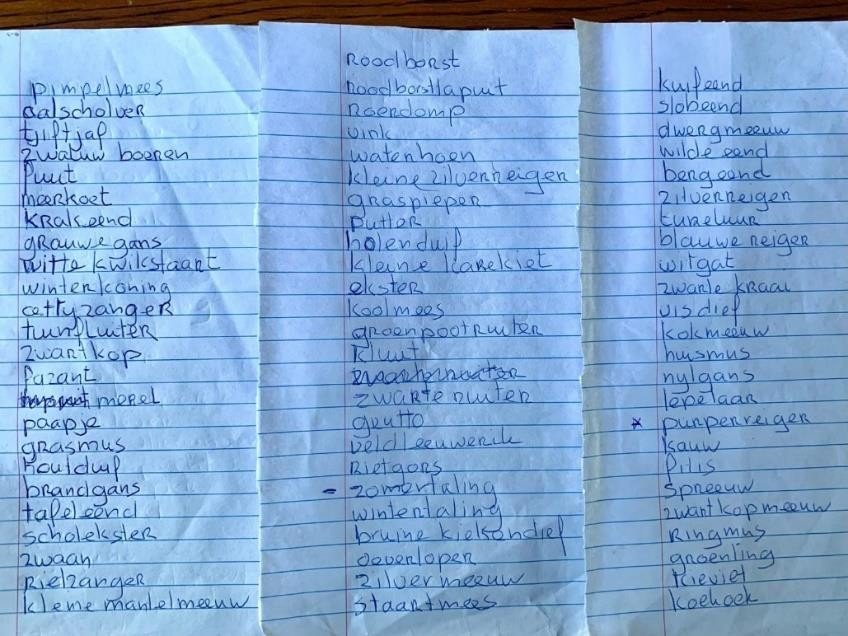 pimpelmees
aalscholver
tjiftjaf
zwaluw boeren
fuut
meerkoet
krakeend
grauwe gans
witte kwikstaart
winterkoning
cettyzanger
tuinfluiter
zwartkop
fazant
merel
paapje
grasmus
houtduif
brandgans
tafeleend
scholekster
zwaan
rietzanger
kleine mantelmeeuw
roodborst
roodborsttapuit
roerdomp
vink
waterhoen
kleine zilverreiger
graspieper
putter
holenduif
kleine karekiet
ekster
koolmees
groenpootruiter
kluut
zwarte ruiter
grutto
veldleeuwerik
rietgors
- zomertaling
wintertaling
bruine kiekendief
oeverloper
zilvermeeuw
staartmees
kuifeend
slobeend
dwergmeeuw
wilde eend
bergeend
zilverreiger
tureluur
blauwe reiger
witgat
zwarte kraai
visdief
kokmeeuw
huismus
nylgans
lepelaar
* purperreiger
kauw
fitis
spreeuw
zwartkopmeeuw
ringmus
groenling
kieviet
koekoek